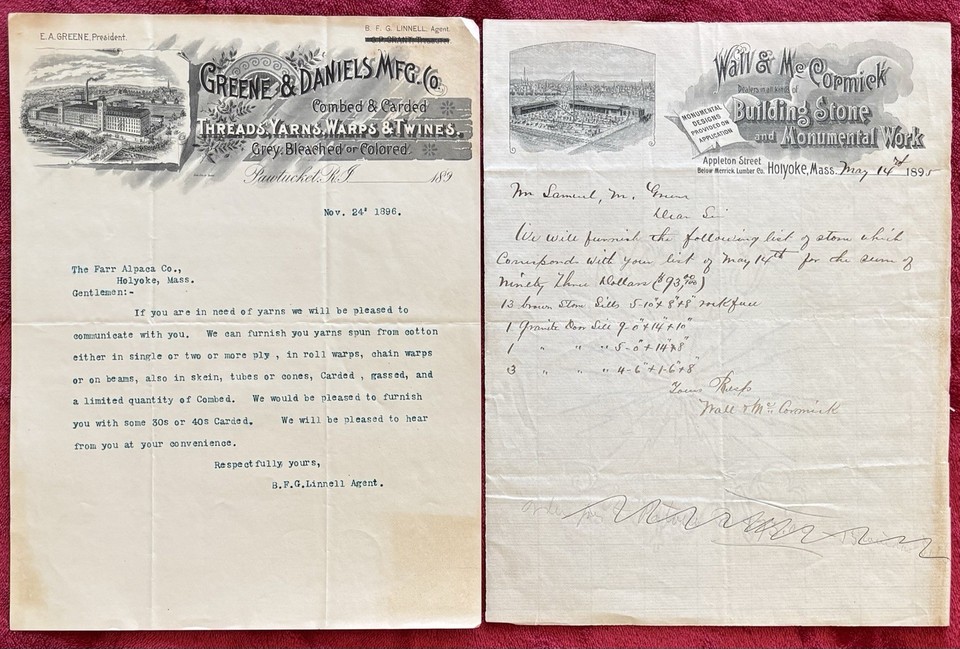 E. A. GREENE, President.
B. F. G. LINNELL, Agent.
GREENE & DANIELS MFG. CO.
Combed & Carded
THREADS, YARNS, WARPS & TWINES.
Grey, Bleached or Colored.
Pawtucket, R.I. 189
Nov. 24" 1896.
The Farr Alpaca Co.,
Holyoke, Mass.
Gentlemen:-
If you are in need of yarns we will be pleased to
communicate with you. We can furnish you yarns spun from cotton
either in single or two or more ply , in roll warps, chain warps
or on beams, also in skein, tubes or cones, Carded , gassed, and
a limited quantity of Combed. We would be pleased to furnish
you with some 30s or 40s Carded. We will be pleased to hear
from you at your convenience.
Respectfully yours,
B.F.G.Linnell Agent.
Wall & McCormick
Dealers in all kinds of
Building Stone
and Monumental Work
MONUMENTAL
DESIGNS
PROVIDED ON
APPLICATION
Appleton Street
Below Merrick Lumber Co. Holyoke, Mass. May 14th 1895
Mr Samuel, M. Green
Dear Sir
We will furnish the following list of stone which
Corresponds with your list of May 14th for the sum of
Ninety Three Dollars ($93,00/100)
13 brown Stone Sills 5-10"+8"+8" rockface
1 Granite Door Sill 9-0"+14"+10"
1 " " " 5-0"+14"+8"
3 " " " 4-6"+1-6"+8"
Yours Resp
Wall & McCormick